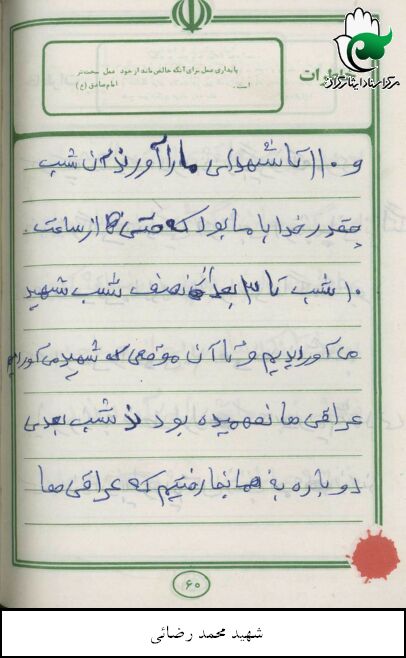 مرکز اسناد ایثارگران
خاطرات
پایداری عمل برای آنکه خالص بماند از خود عمل سخت‌تر
است.
امام صادق (ع)
و ۱۱۰ تا شهدای ما را آوردند آن شب
چقدر خدا با ما بود که حتی از ساعت
۱۰ شب تا ۳ بعد از نصف شب شهید
می آوردیم و تا آن موقعی که شهید می آوردیم
عراقی ها نفهمیده بودند شب بعدی
دوباره به همانجا رفتیم که عراقی ها
۶۰
شهید محمد رضائی